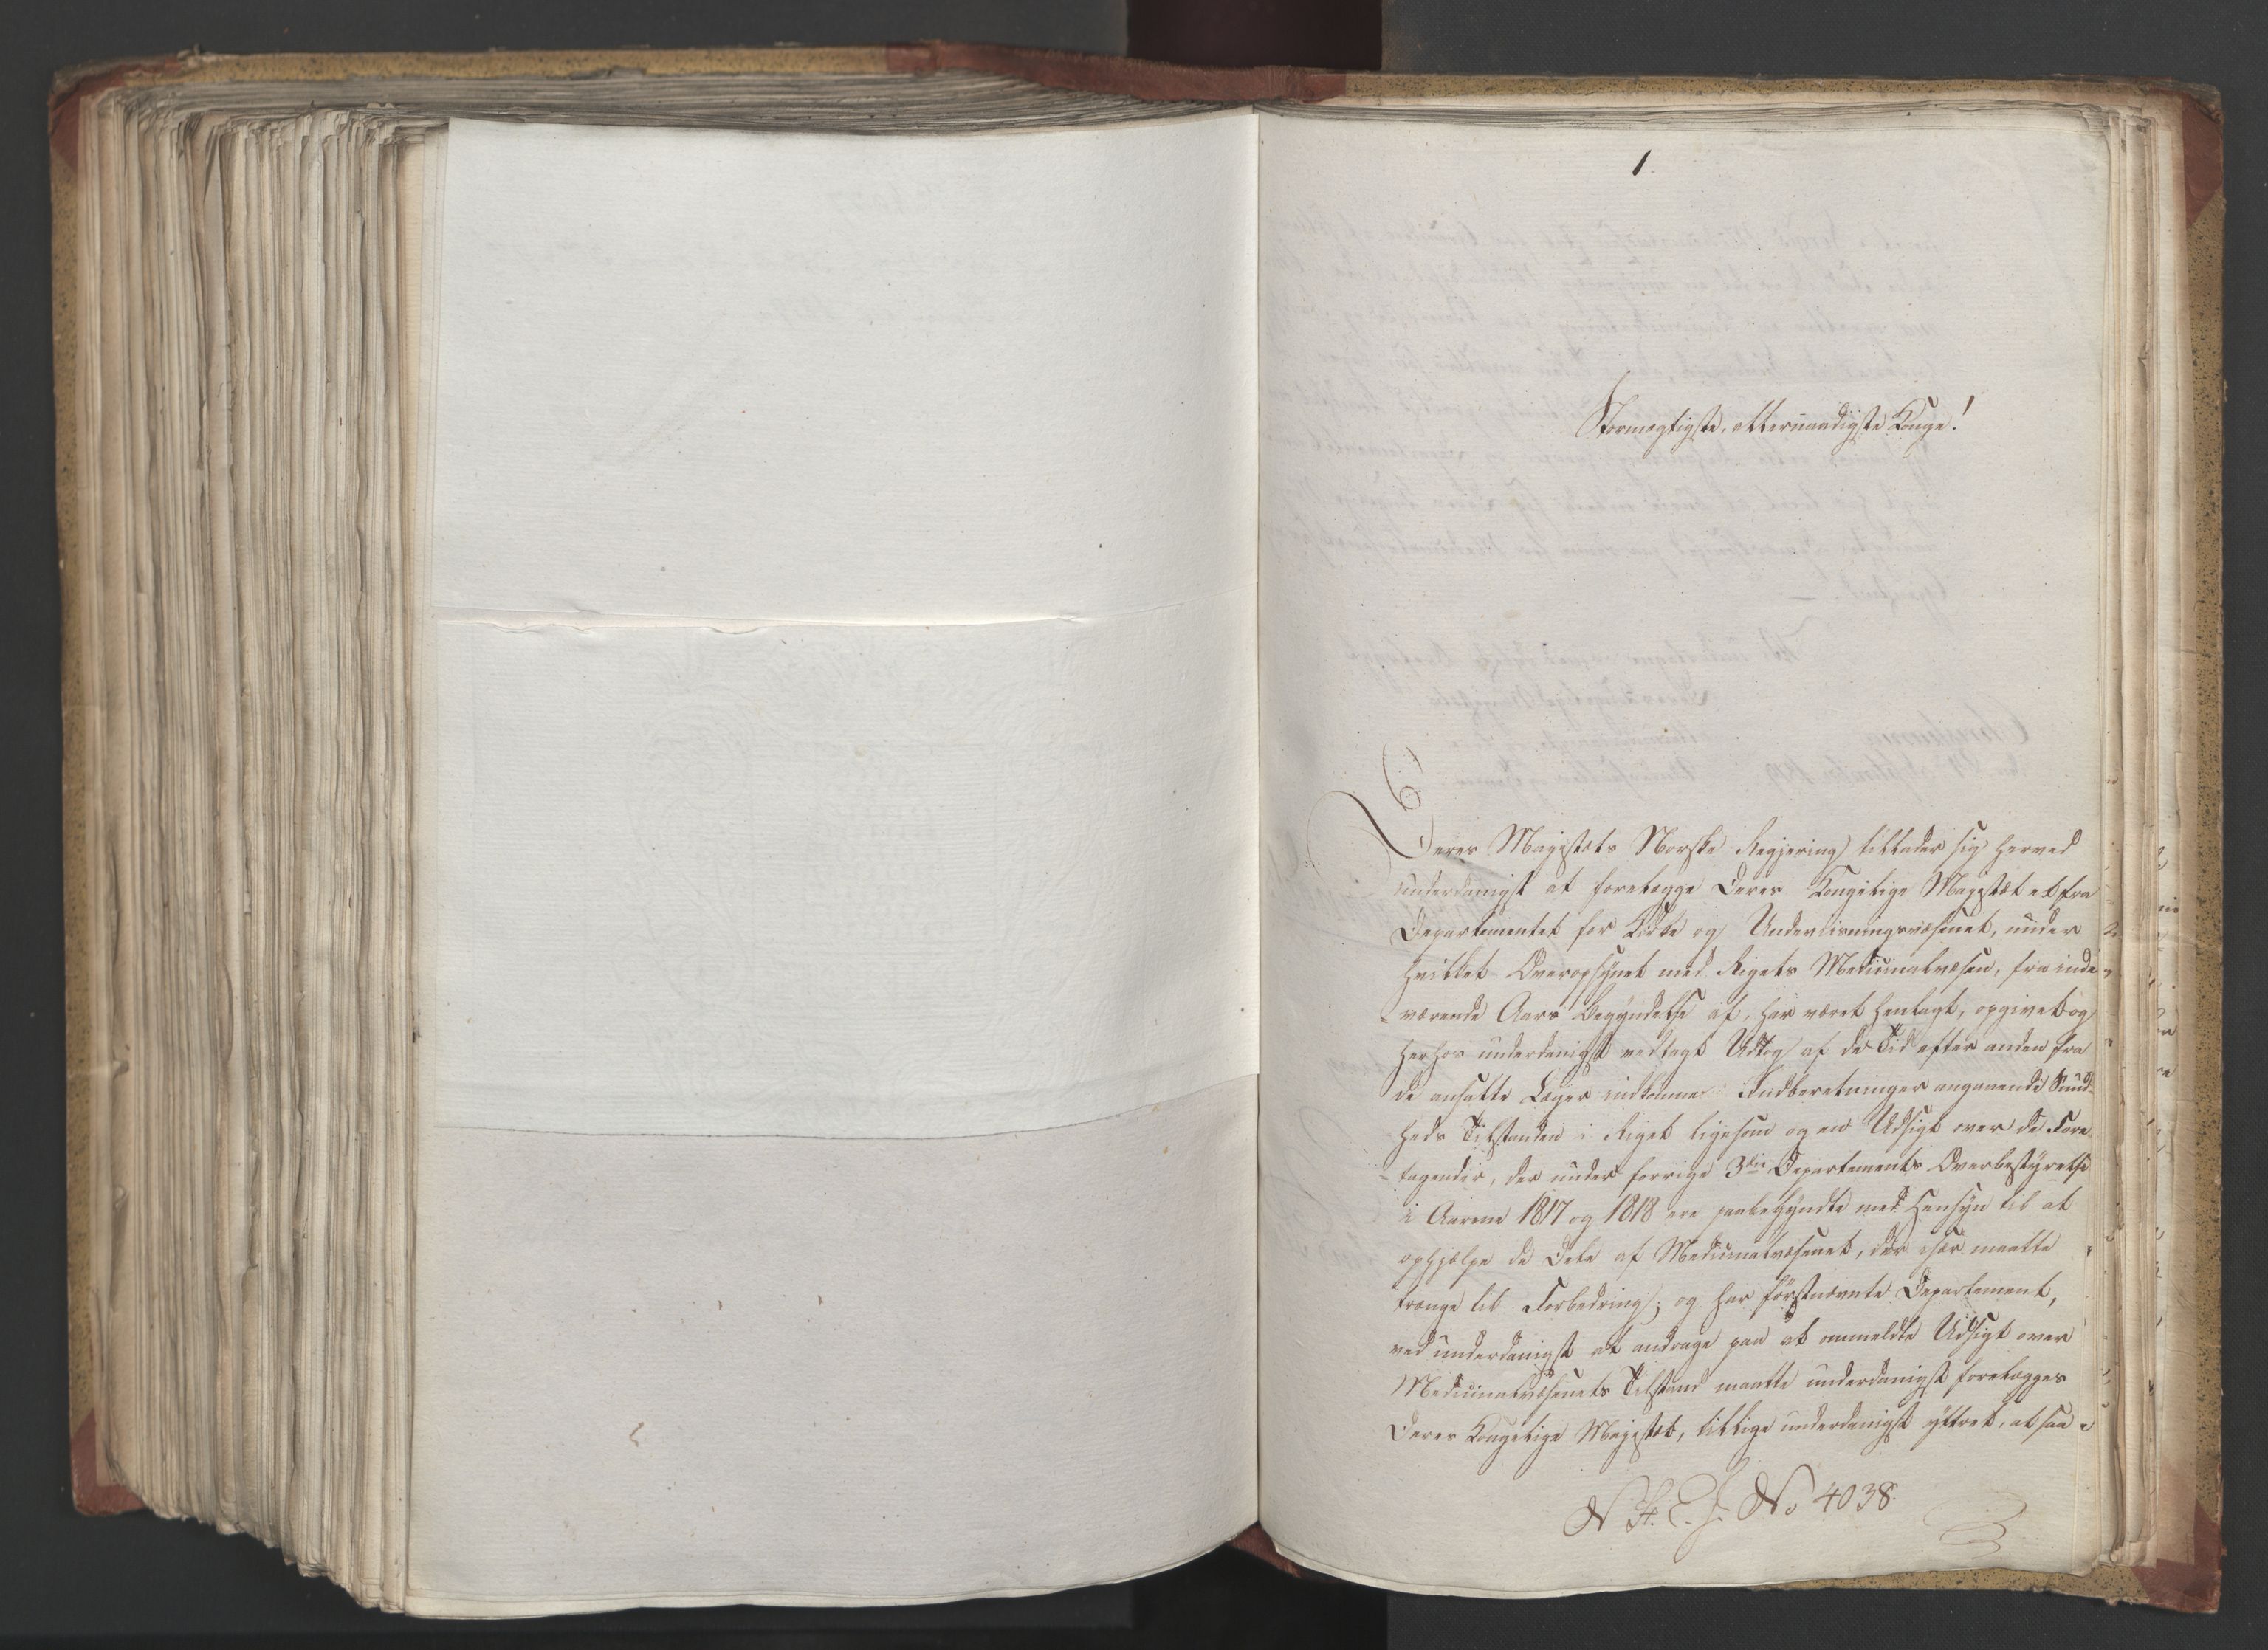 1.
Stormægtigste, allernaadigste Konge!
Deres Majestæts Norske Regjering tillader sig herved
underdanigst at forelægge Deres Kongelige Majestæt et fra
Departementet for Kirke og Underviisningsvæsenet, under
hvilket Overopsynet med Rigets Medicinalvæsen, fra inde-
værende Aars Begyndelse af, har været henlagt, opgivet og
herhos underdanigst vedlagt Udtog af de Tid efter anden fra
de ansatte Læger indkomne Indberetninger angaaende Sund-
heds Tilstanden i Riget ligesom og en Udsigt over de Fore-
tagender, der under forrige 3die Departements Overbestyrelse
i Aarene 1817 og 1818 ere paabegyndte med Hensyn til at
ophjælpe de Dele af Medicinalvæsenet, der især maatte
trænge til Forbedring; og har førstnævnte Departement,
ved underdanigst at andrage paa at ommeldte Udsigt over
Medicinalvæsenets Tilstand maatte underdanigst forelægges
Deres Kongelige Majestæt, tillige underdanigst yttret, at saa
N St. E. J. No 4038.